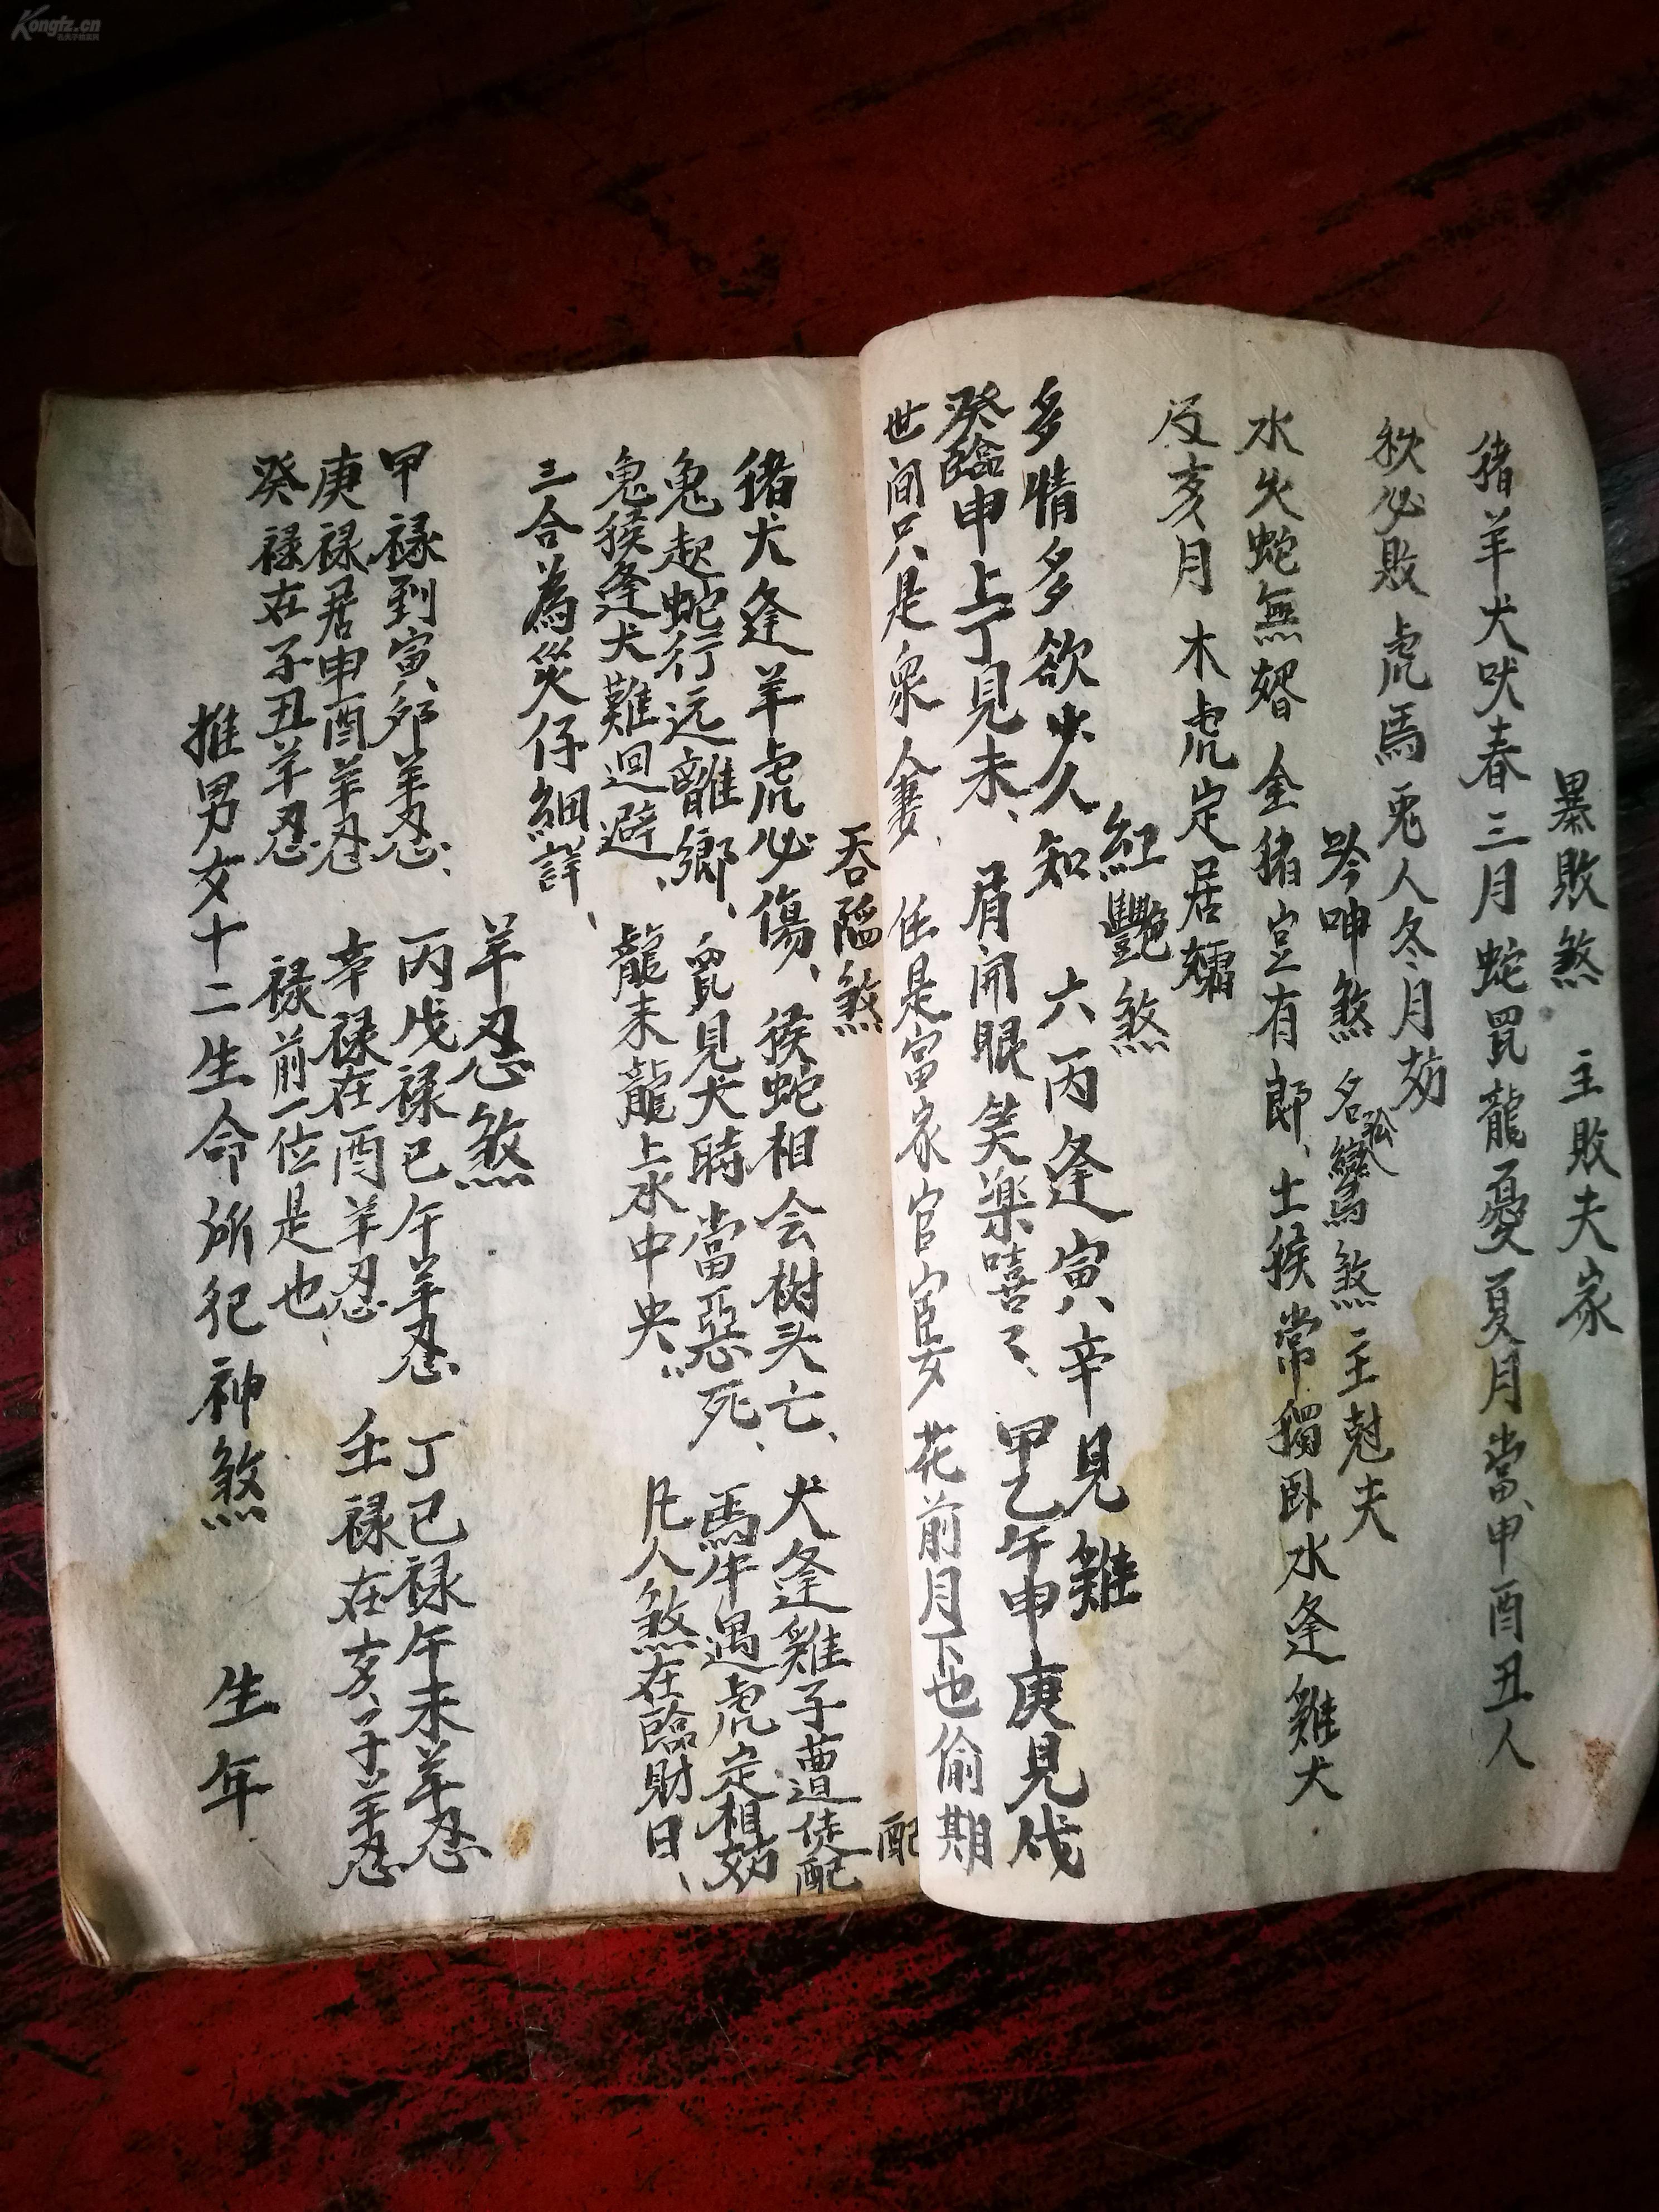 暴敗煞 主敗夫家
猪羊犬吠春三月 蛇鼠龍憂夏月當、申酉丑人
秋必敗 虎馬兎人冬月妨
呻煞 名孤鸞煞 主尅夫
水火蛇無婿 金猪豈有郎、土猴常獨臥 水逢雞犬
及亥月 木虎定居孀
紅艷煞
多情多欲少人知 六丙逢寅辛見雞
癸臨申上丁見未、眉開眼笑楽嘻〻、甲乙午申庚見戌
世间只是衆人妻、任是富家官宦女 花前月下也偷期
吞陷煞
猪犬逢羊虎必傷、猴蛇相会樹头亡、犬逢雞子遭徒配
配
兔起蛇行远離鄉、鼠見犬時當惡死、馬牛遇虎定相妨
兔猴逢犬難迴避、龍来龍上水中央、凡人煞在臨財日、
三合為災仔細詳、
羊忍煞
甲禄到寅夘羊忍、丙戊禄巳午羊忍 丁己禄午未羊忍
庚禄居申酉羊忍 辛禄在酉羊忍 壬禄在亥子羊忍
癸禄在子丑羊忍 禄前一位是也、
推男女十二生命所犯神煞 生年
Kongfz.cn